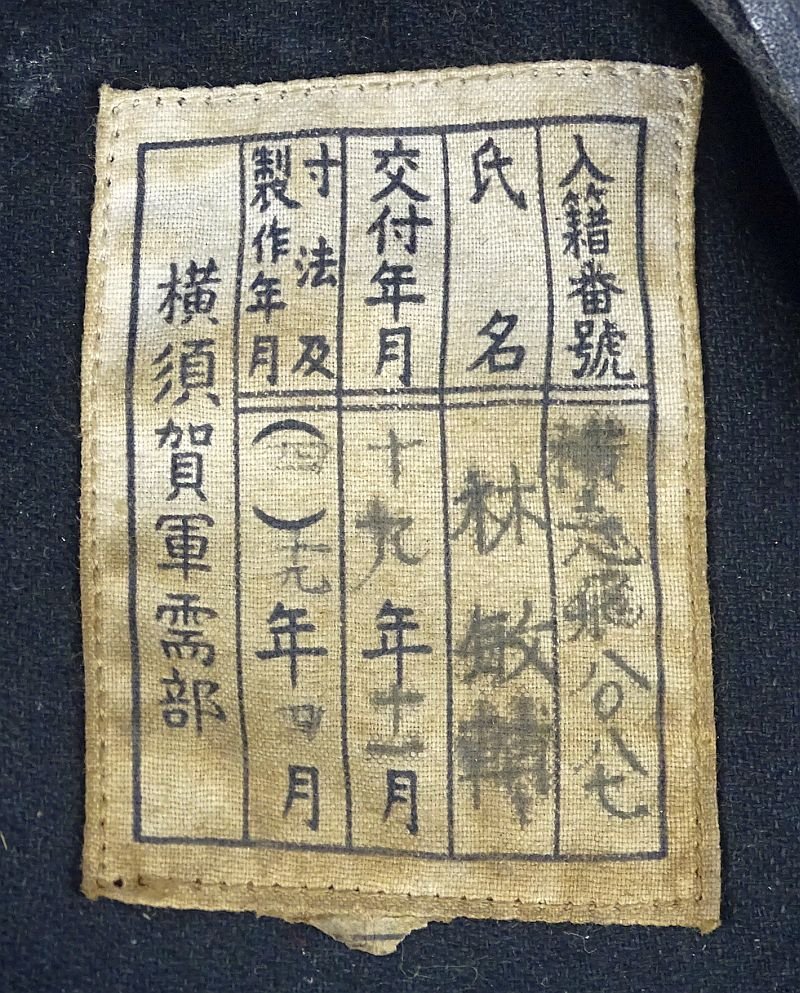 入籍番號
横志飛八〇八七
氏名
林敏
交付年月
十九年十一月
寸法及
製作年月
(四)十九年四月
横須賀軍需部